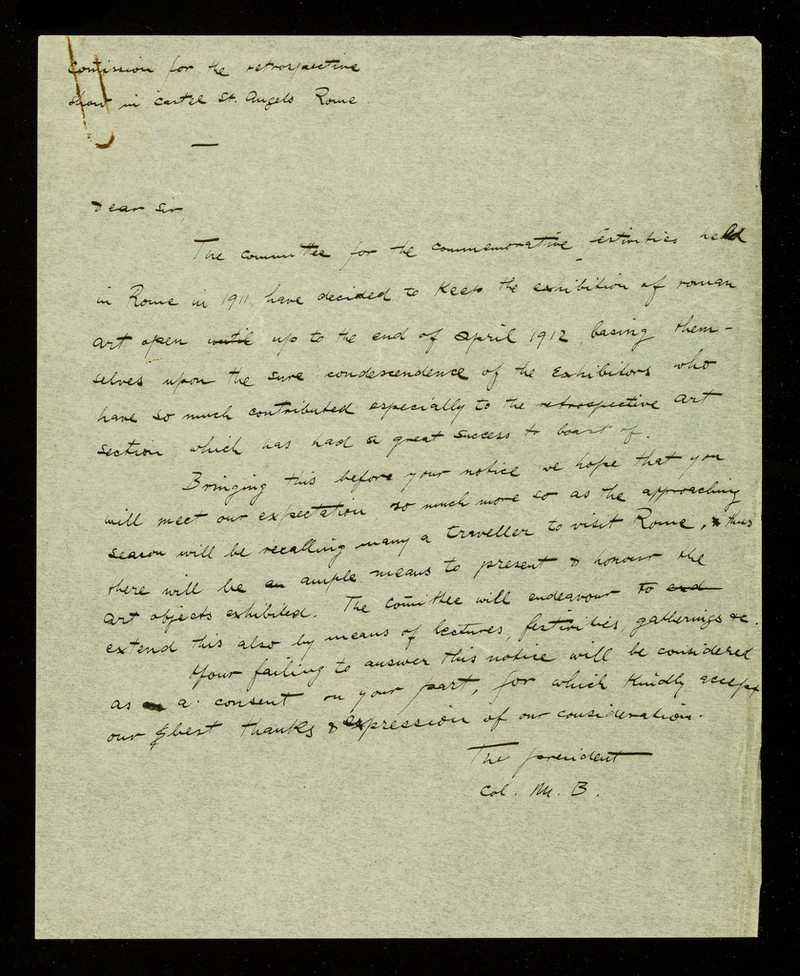 Comission for the retrospective
show in Castle St. Angelo Rome.
—
Dear Sir
The committee for the commemorative festivities held
in Rome in 1911, have decided to keep the exhibition of roman
art open until up to the end of april 1912, basing them-
selves upon the sure condescendence of the Exhibitors who
have so much contributed especially to the retrospective art
section, which has had a great success to boast of.
Bringing this before your notice we hope that you
will meet our expectation so much more so as the approaching
season will be recalling many a traveller to visit Rome, & thus
there will be an ample means to present & honour the
art objects exhibited. The Comittee will endeavour to end
extend this also by means of lectures, festivities, gatherings &c.
Your failing to answer this notice will be considered
as a consent on your part, for which kindly accept
our best thanks & expression of our consideration.
The president
Col. M. B.